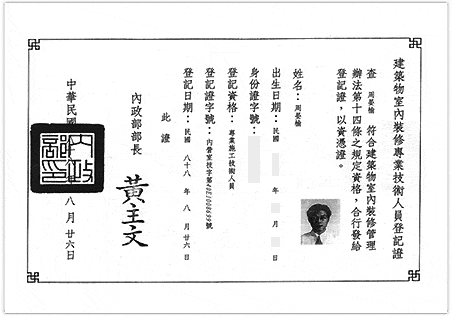 建築物室內裝修專業技術人員登記證
查 周晏榆 符合建築物室內裝修管理
辦法第十四條之規定資格，合行發給
登記證，以資憑證。
姓名：周晏榆
出生日期：民國 年 月 日
身份證字號：
登記資格：專業施工技術人員
登記證字號：內營室技字第40E1008699號
登記日期：民國 八十八 年 八 月 廿六 日
此證
內政部部長 黃主文
中華民國 年 八月廿六日